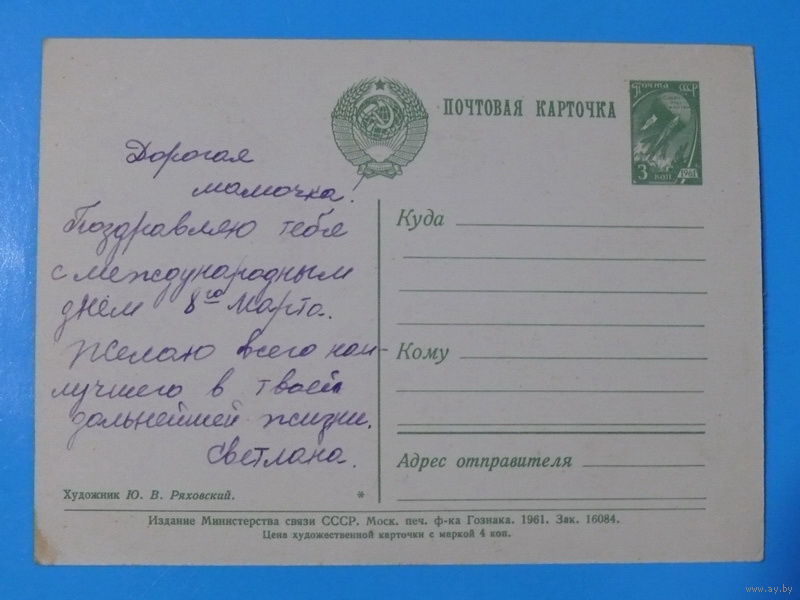 ПОЧТОВАЯ КАРТОЧКА
Почта СССР
3 коп. 1961
Дорогая
мамочка!
Поздравляю тебя
с международным
днём 8го Марта.
Желаю всего наи-
лучшего в твоей
дальнейшей жизни.
Светлана.
Куда
Кому
Адрес отправителя
Художник Ю. В. Ряховский.
*
Издание Министерства связи СССР. Моск. печ. ф-ка Гознака. 1961. Зак. 16084.
Цена художественной карточки с маркой 4 коп.
www.ay.by